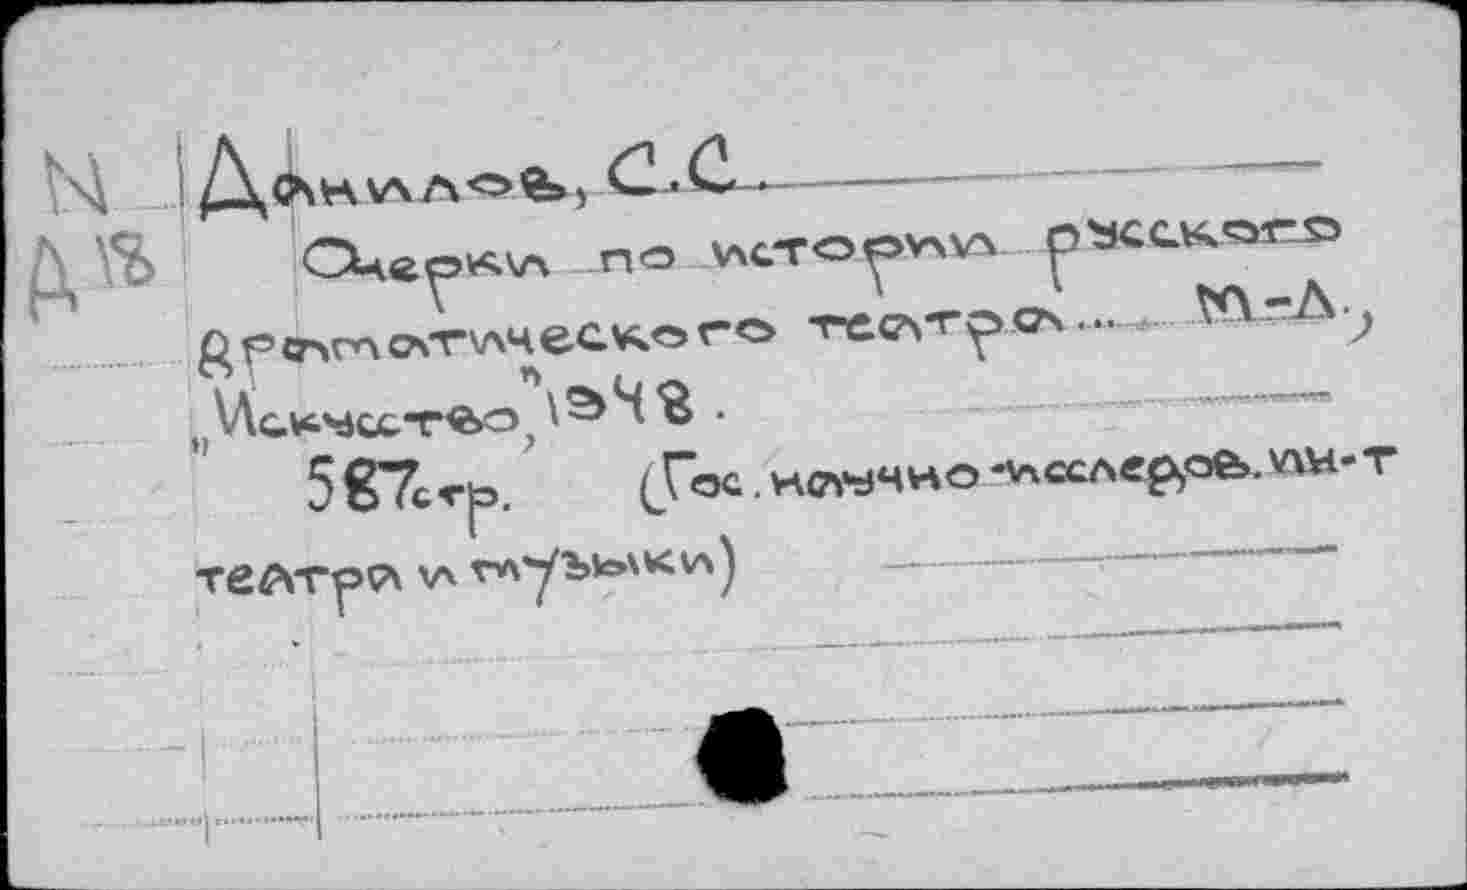 N Данилов, С.С.
Д18 Очерки по истории русского
драматического театра... М.-Л.,
„Искусство", 1948.
587стр. (Гос. научно-исследов. ин-т
театра и музыки)